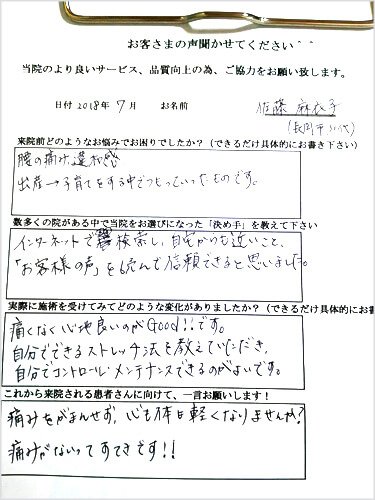 お客さまの声聞かせてください＾＾
当院のより良いサービス、品質向上の為、ご協力をお願い致します。
日付 2018年 7月 お名前 佐藤 麻衣子
(長岡市 30代)
来院前どのようなお悩みでお困りでしたか？（できるだけ具体的にお書き下さい）
腰の痛み、違和感
出産→子育てをする中でつもっていったものです。
数多くの院がある中で当院をお選びになった「決め手」を教えて下さい
インターネットで検索し、自宅からも近いこと、
「お客様の声」を読んで信頼できると思いました。
実際に施術を受けてみてどのような変化がありましたか？（できるだけ具体的にお書
痛くなく心地良いのがGood!!です。
自分でできるストレッチ法を教えていただき、
自分でコントロール・メンテナンスできるのがよいです。
これから来院される患者さんに向けて、一言お願いします！
痛みをがまんせず、心も体も軽くなりませんか？
痛みがないってすてきです!!